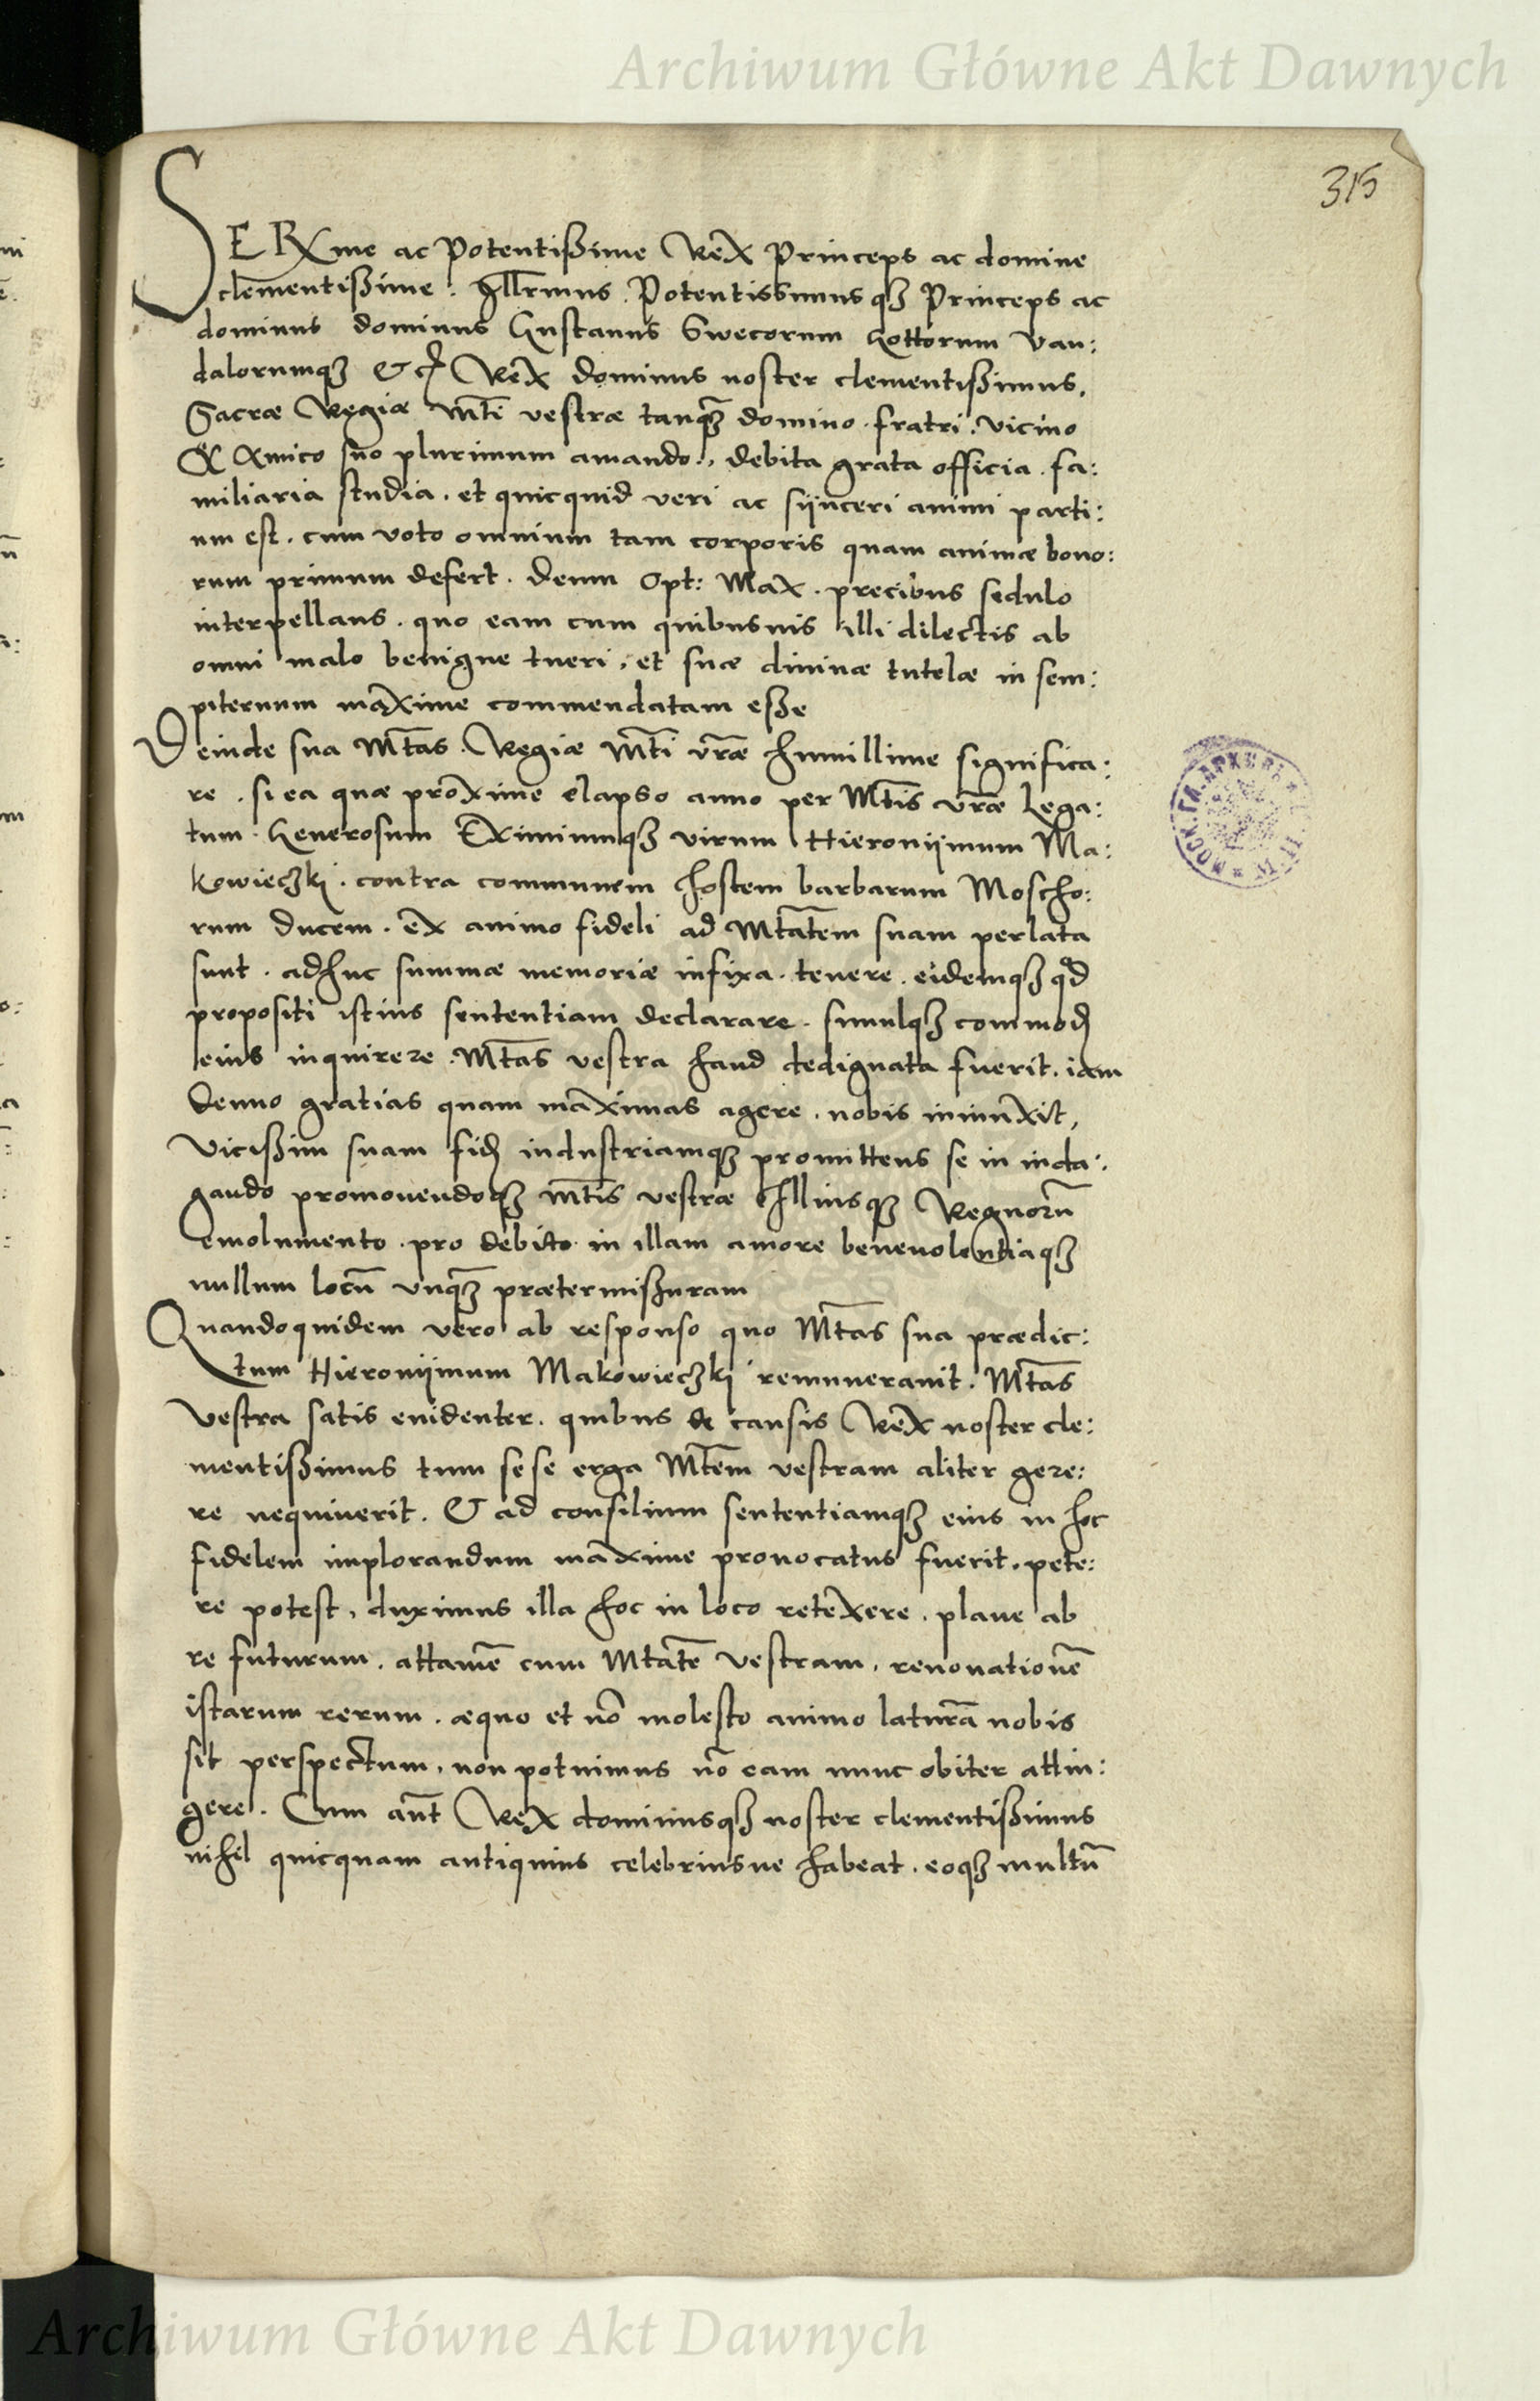 Archiwum Główne Akt Dawnych
315
SERXme ac Potentißime Rex Princeps ac domine
clementißime. Illrmus. Potentissimusqꝫ Princeps ac
dominus dominus Gustauus Swecorum Gottorum Van:
dalorumqꝫ &c Rex dominus noster clementißimus.
Sacræ Regiæ Mti vestræ tanqꝫ domino. fratri. vicino
& Amico suo plurimum amando., debita grata officia. fa:
miliaria studia. et quicquid veri ac sijnceri animi parti:
um est. cum voto omnium tam corporis quam animæ bono:
rum primum defert. Deum Opt: Max. precibus sedulo
interpellans. quo eam cum quibusuis illi dilectis ab
omni malo benigne tueri. et suæ diuinæ tutelæ in sem:
piternum maxime commendatam eße
Deinde sua Mtas. Regiæ Mti vræ humillime significa:
re. si ea quæ proxime elapso anno per Mtis vræ Lega:
tum. Generosum Eximiumqꝫ virum Hieronijmum Ma:
kowieczkj. contra communem hostem barbarum Moscho:
rum Ducem. ex animo fideli ad Mtatem suam perlata
sunt. adhuc summæ memoriæ infixa. tenere. eidemqꝫ qd
propositi istius sententiam declarare. simulqꝫ commod
eius inquirere. Mtas vestra haud dedignata fuerit. iam
denuo gratias quam maximas agere. nobis iniunxit,
Vicißim suam fid industriamqꝫ promittens se in inda:
gando promouendoqꝫ Mtis vestræ Illiusqꝫ Regnorū
emolumento. pro debito in illam amore beneuolentiaqꝫ
nullum locū vnqꝫ prætermißuram
Quandoquidem vero ab responso quo Mtas sua prædic:
tum Hieronijmum Makowieczkj remunerauit. Mtas
Vestra satis euidenter. quibus de causis Rex noster cle:
mentißimus tum sese erga Mtem vestram aliter gere:
re nequiuerit. & ad consilium sententiamqꝫ eius in hoc
fidelem implorandum maxime prouocatus fuerit. pete:
re potest, duximus illa hoc in loco retexere. plane ab
re futurum. attamē cum Mtatē Vestram. renouationē
istarum rerum. æquo et nō molesto animo laturā nobis
sit perspectum, non potuimus nō eam nunc obiter attin:
gere. Cum aūt Rex dominusqꝫ noster clementißimus
nihil quicquam antiquius celebriusue habeat. eoqꝫ multū
Archiwum Główne Akt Dawnych